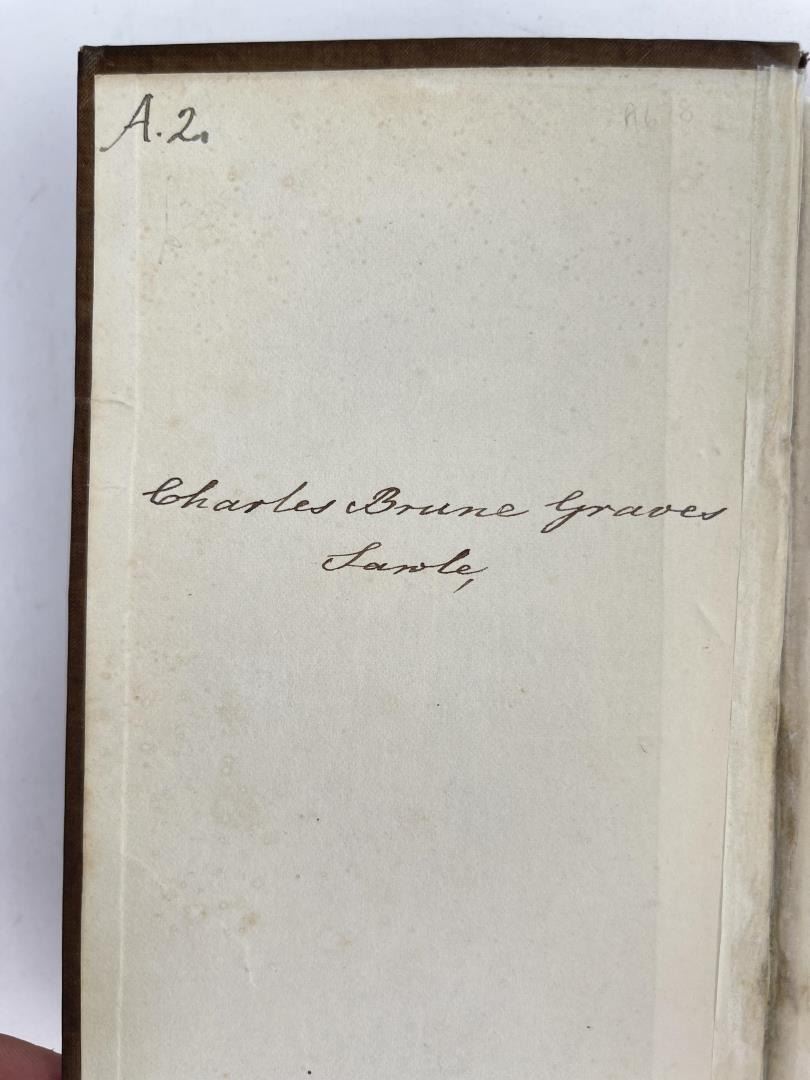 A.2.
Charles Brune Graves
Sawle,